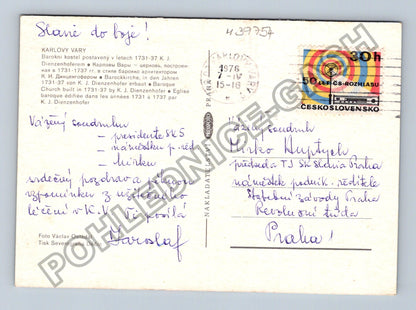 Slané do boje!
439757
KARLOVY VARY
Barokní kostel postavený v letech 1731-37 K. J.
Dienzenhoferem • Карловы Вары — церковь, построен-
ная в 1731-1737 гг. в стиле барокко архитектором
К. И. Динценгофером • Barockkirche, in den Jahren
1731-37 von K. J. Dienzenhofer erbaut • Baroque
Church built in 1731-37 by K. J. Dienzenhofer • Église
baroque édifiée dans les années 1731 à 1737 par
K. J. Dienzenhofer
1976
7.-IV
15-18
30h
50 LET ČS. ROZHLASU
ČESKOSLOVENSKO
Vážený soudruhu
– presidente SKS
– náměstku p. ředit.
– Mirku
srdečný pozdrav a pěknou
vzpomínku z
léčení v K.V. Ti posílá
Jaroslav
Foto Václav
Tisk Severografia Děčín
NAKLADATELSTVÍ
PRAHA
Vážený soudruh
Mirko Hustych
předseda TJ Sk Slavia Praha
náměstek podnik. ředitele
Stavební závody Praha
Revoluční třída
Praha!
POHLEDNICE-CASH